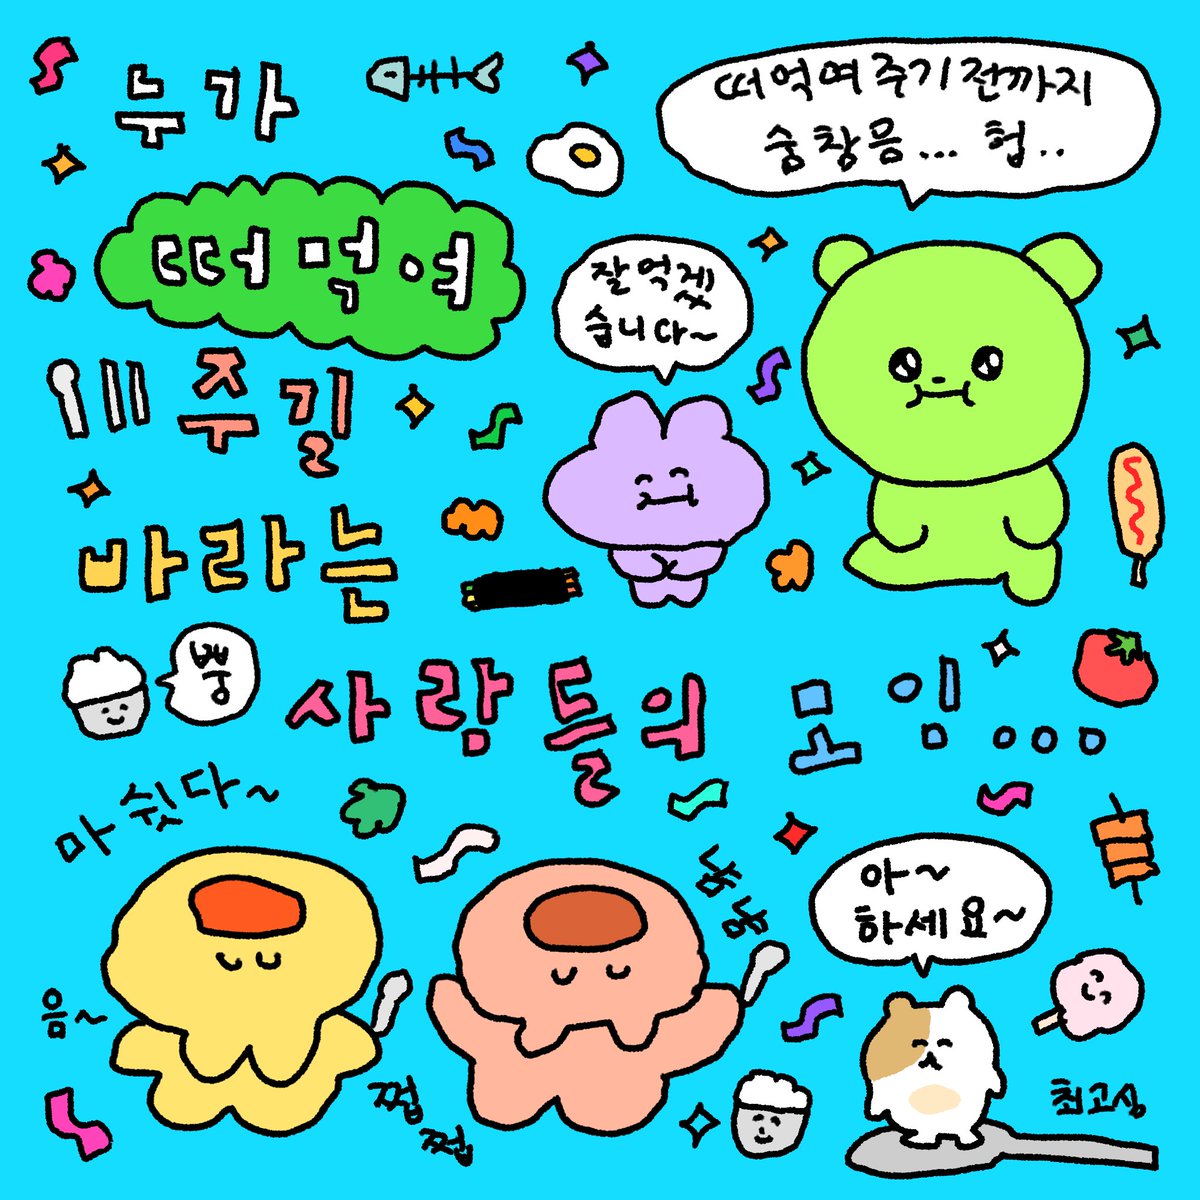 누가
떠먹여
주길
바라는
사람들의 모임...
떠먹여주기전까지
숨참음... 헙..
잘먹겠
습니다~
뿅
마쉿다~
음~
쩝
쩝
냠
냠
아~
하세요~
최고심